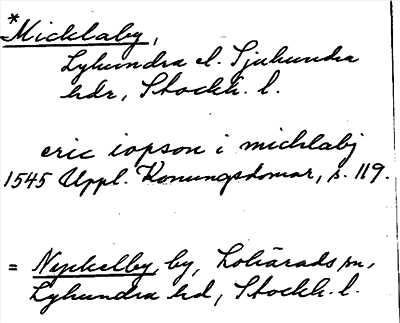 *Micklaby,
Lyhundra el. Sjuhundra
hdr, Stockh. l.
eric iopson i micklabj
1545 Uppl. Konungsdomar, s. 119.
= Nyckelby, by, Lohärads sn,
Lyhundra hd, Stockh. l.